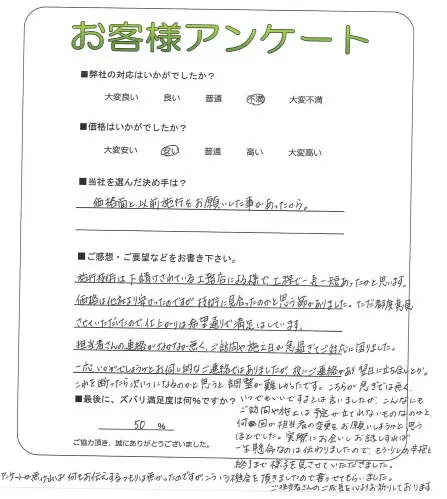 お客様アンケート
■弊社の対応はいかがでしたか？
大変良い 良い 普通 不満 大変不満
■価格はいかがでしたか？
大変安い 安い 普通 高い 大変高い
■当社を選んだ決め手は？
価格面と、以前施行をお願いした事があったから。
■ご感想・ご要望などをお書き下さい。
施行技術は下請けされている工務店による様で、工程で一長一短あったかと思います。
価格は他社より安かったのですが技術に見合ったのかと思う節がありました。ただ都度意見
させていただいたので仕上がりは希望通りで満足はしています。
担当者さんの連絡がなかなか無く、ご訪問や施工日が急過ぎてご対応に困りました。
一応、いかがでしょうかとお伺い的なご連絡ではありましたが、夜にご連絡があり翌日に立ち会いとか。
これを断ったら次いつになるのかと思うと調整が難しかったです。こちらが急ぎでは無く、
■最後に、ズバリ満足度は何％ですか？
いつでもいいですよとは言いましたが、こんなにも
ご訪問や施工は予定が立れないものなのかと、
50 %
何回か担当者の変更をお願いしようかと思う
ほどでした。実際にお会いしお話しすれば
ご協力頂き、誠にありがとうございました。
一生懸命なのは伝わりましたので、もう少しの辛抱と
終了まで様子を見させていただきました。
アンケートが無ければ何もお伝えするつもりは無かったのですが、こういう機会を頂きましたので書かせてもらいました。
ご担当者さんのご成長を心よりお祈りしております